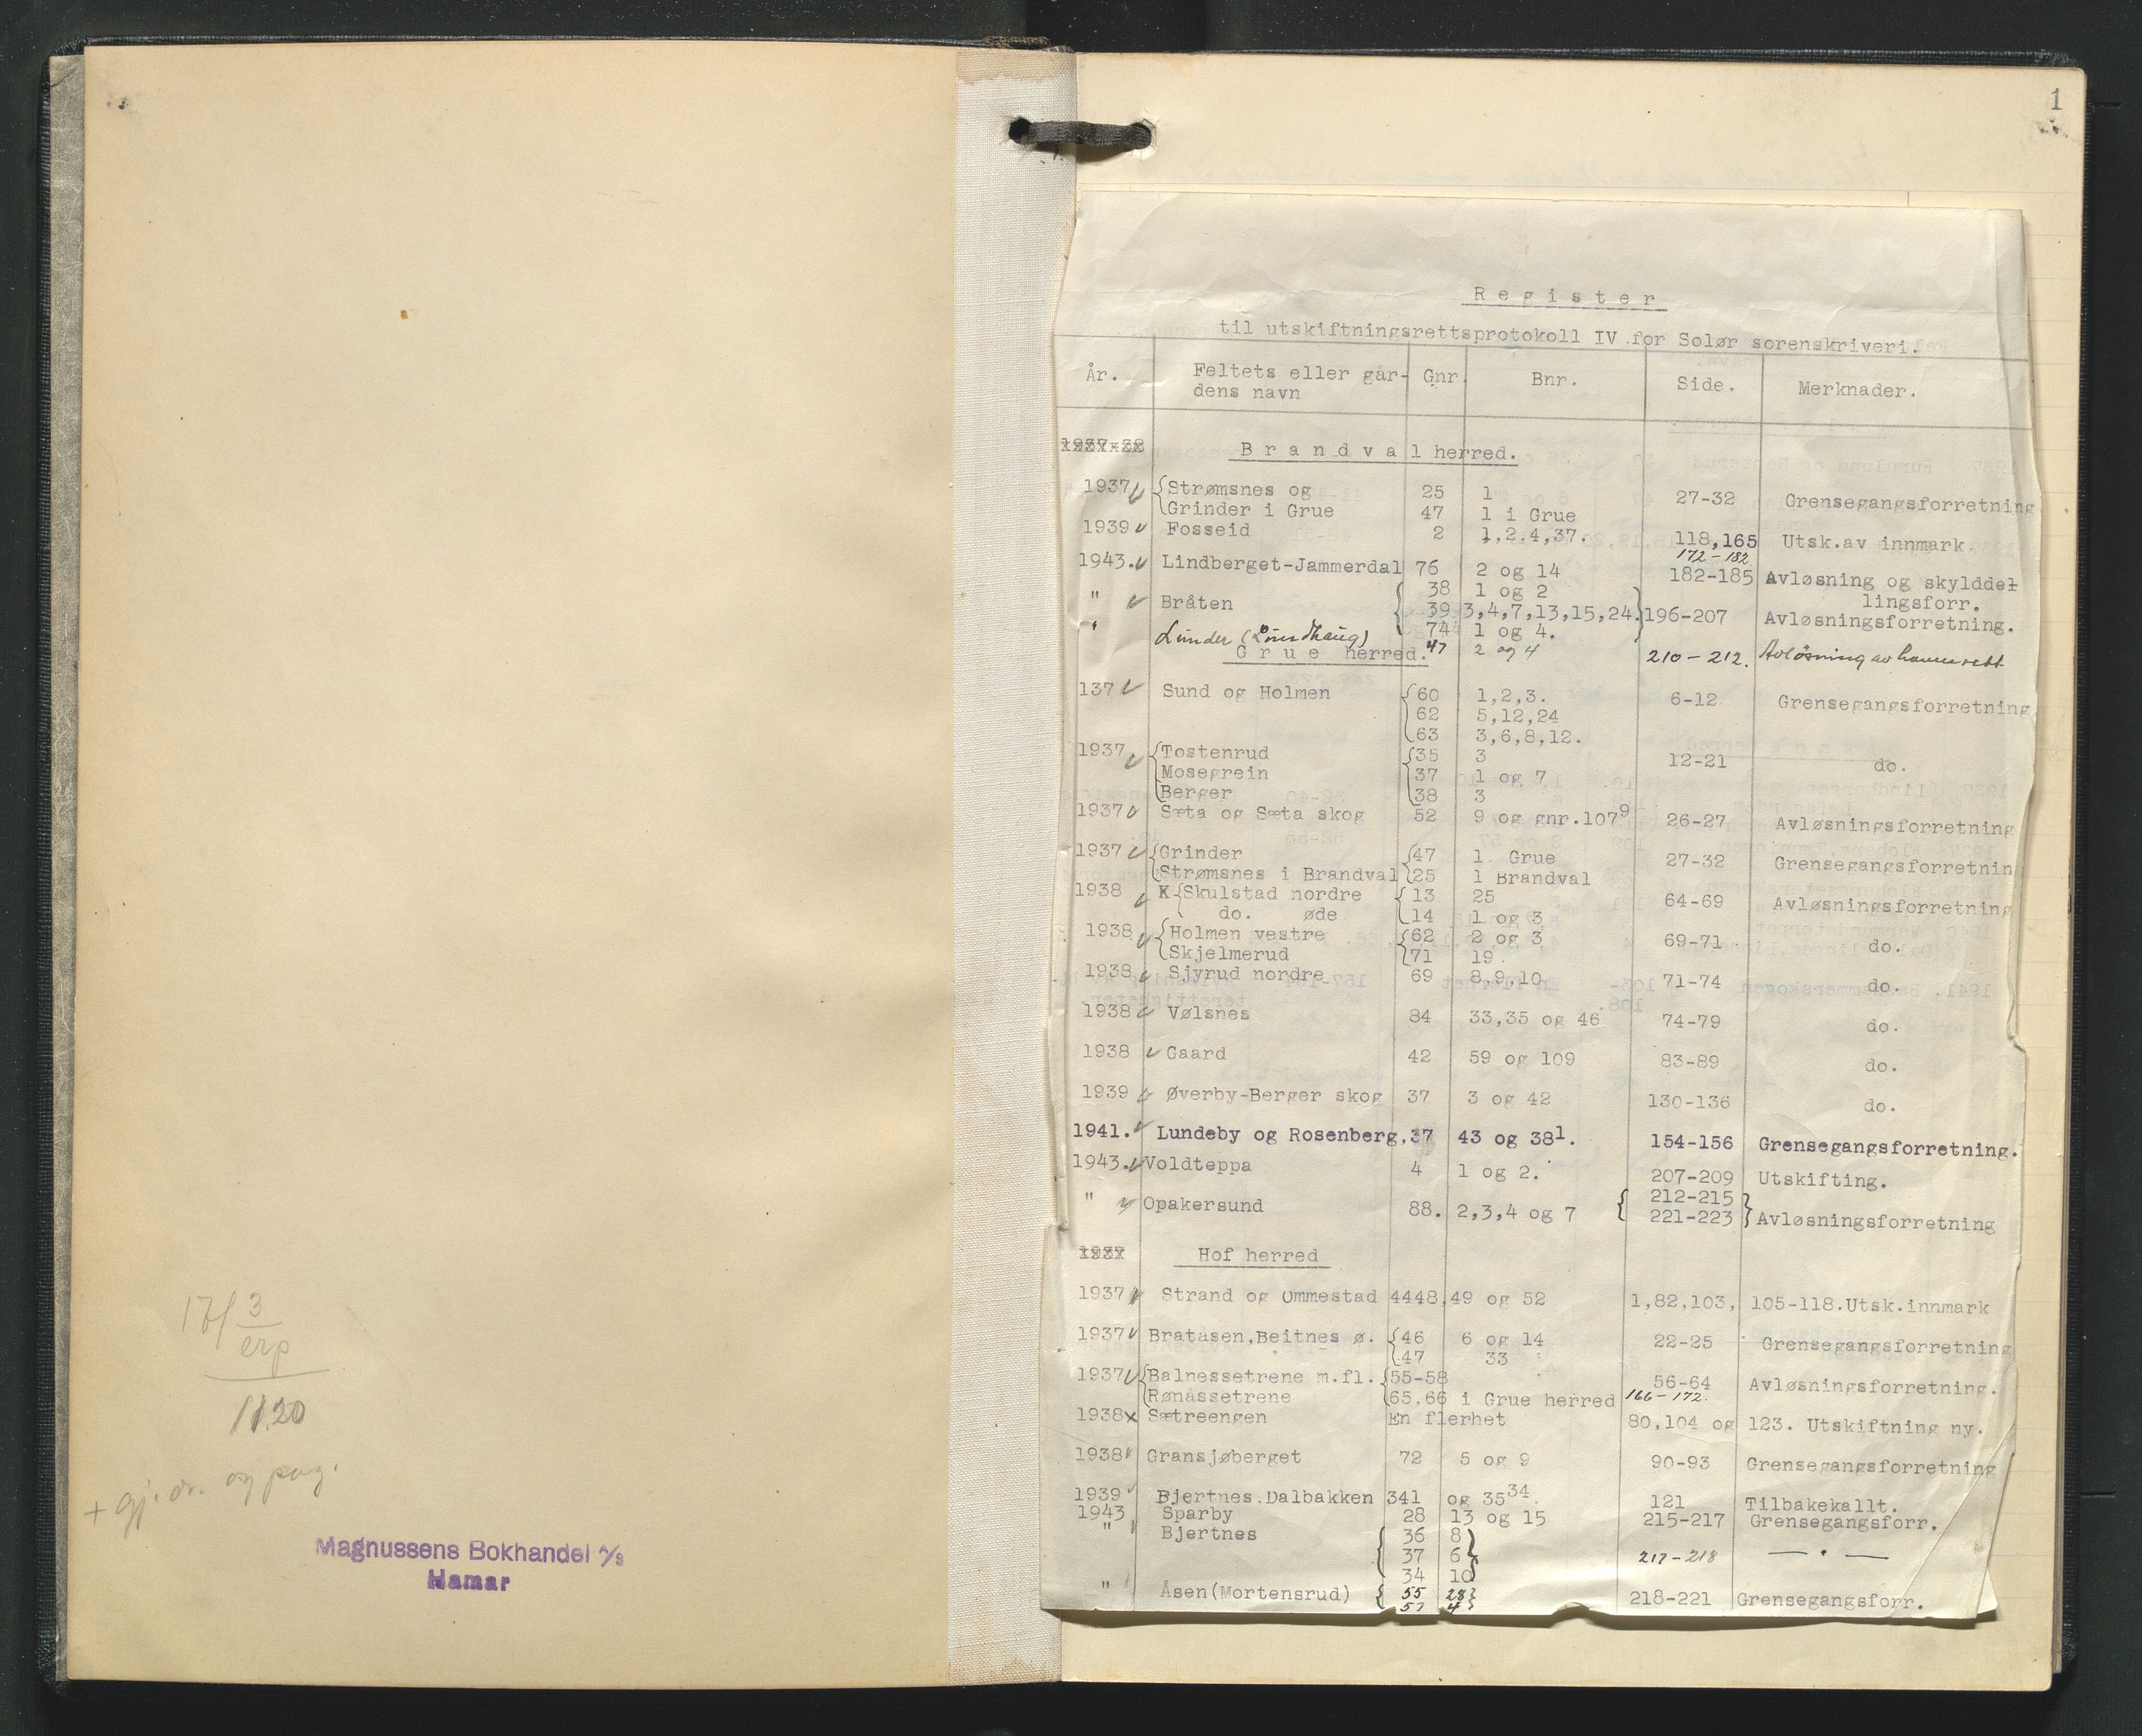 17/3
erp
11.20
+ gj. or. og pag.
Magnussens Bokhandel A/S
Hamar
1
Register
til utskiftningsrettsprotokoll IV for Solør sorenskriveri.
År. Feltets eller går- Gnr. Bnr. Side. Merknader.
dens navn
1937-38 Brandval herred.
1937 Strømsnes og 25 1 27-32 Grensegangsforretning
Grinder i Grue 47 1 i Grue
1939 Fosseid 2 1,2.4,37. 118,165 Utsk.av innmark
172-182
1943. Lindberget-Jammerdal 76 2 og 14 182-185 Avløsning og skylddel-
lingsforr.
" Bråten 38 1 og 2
39 3,4,7,13,15,24. 196-207 Avløsningsforretning.
74 1 og 4.
" Lunder (Lundhaug) 47 2 og 4 210-212. Avløsning av havnerett
Grue herred.
137 Sund og Holmen 60 1,2,3. 6-12 Grensegangsforretning
62 5,12,24
63 3,6,8,12.
1937 Tostenrud 35 3 12-21 do.
Mosegrein 37 1 og 7
Berger 38 3
1937 Sæta og Sæta skog 52 9 og gnr.107⁹ 26-27 Avløsningsforretning
1937 Grinder 47 1 Grue 27-32 Grensegangsforretnin
Strømsnes i Brandval 25 1 Brandval
1938 K Skulstad nordre 13 25 64-69 Avløsningsforretning
do. øde 14 1 og 3
1938 Holmen vestre 62 2 og 3 69-71 do.
Skjelmerud 71 19.
1938 Sjyrud nordre 69 8,9,10 71-74 do.
1938 Vølsnes 84 33,35 og 46 74-79 do.
1938 Gaard 42 59 og 109 83-89 do.
1939 Øverby-Berger skog 37 3 og 42 130-136 do.
1941. Lundeby og Rosenberg, 37 43 og 38¹. 154-156 Grensegangsforretning.
1943. Voldteppa 4 1 og 2. 207-209 Utskifting.
" Opakersund 88. 2,3,4 og 7 212-215
221-223 Avløsningsforretning
1937 Hof herred
1937 Strand og Ommestad 44 48,49 og 52 1,82,103, 105-118.Utsk.innmark
1937 Bratåsen,Beitnes ø. 46 6 og 14 22-25 Grensegangsforretning
47 33
1937 Balnessetrene m.fl. 55-58 56-64 Avløsningsforretning.
Rønåssetrene 65,66 i Grue herred 166-172.
1938x Sætreengen En flerhet 80,104 og 123. Utskiftning ny.
1938 Gransjøberget 72 5 og 9 90-93 Grensegangsforretning
1939 Bjertnes.Dalbakken 34 1 og 35³⁴. 121 Tilbakekallt.
1943 Sparby 28 13 og 15 215-217 Grensegangsforr.
" Bjertnes 36 8
37 6 217-218 — " —
34 10
" Åsen(Mortensrud) 55 28 218-221 Grensegangsforr.
57 4